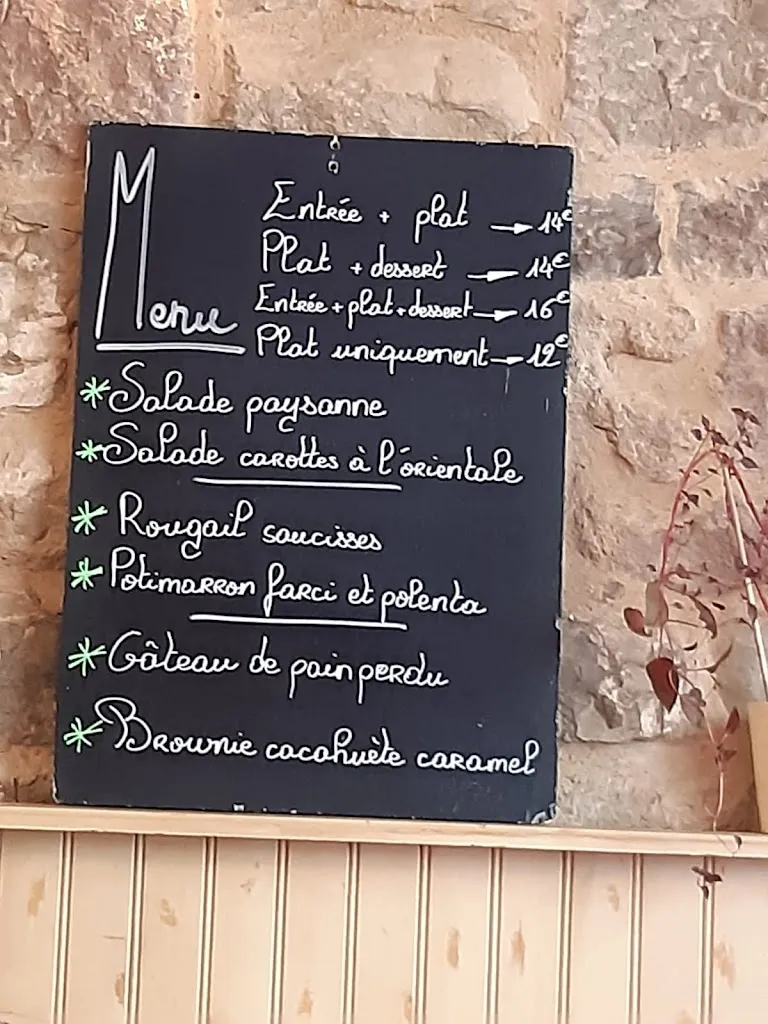 Menu
Entrée + plat → 14€
Plat + dessert → 14€
Entrée + plat + dessert → 16€
Plat uniquement → 12€
* Salade paysanne
* Salade carottes à l'orientale
* Rougail saucisses
* Potimarron farci et polenta
* Gâteau de pain perdu
* Brownie cacahuète caramel